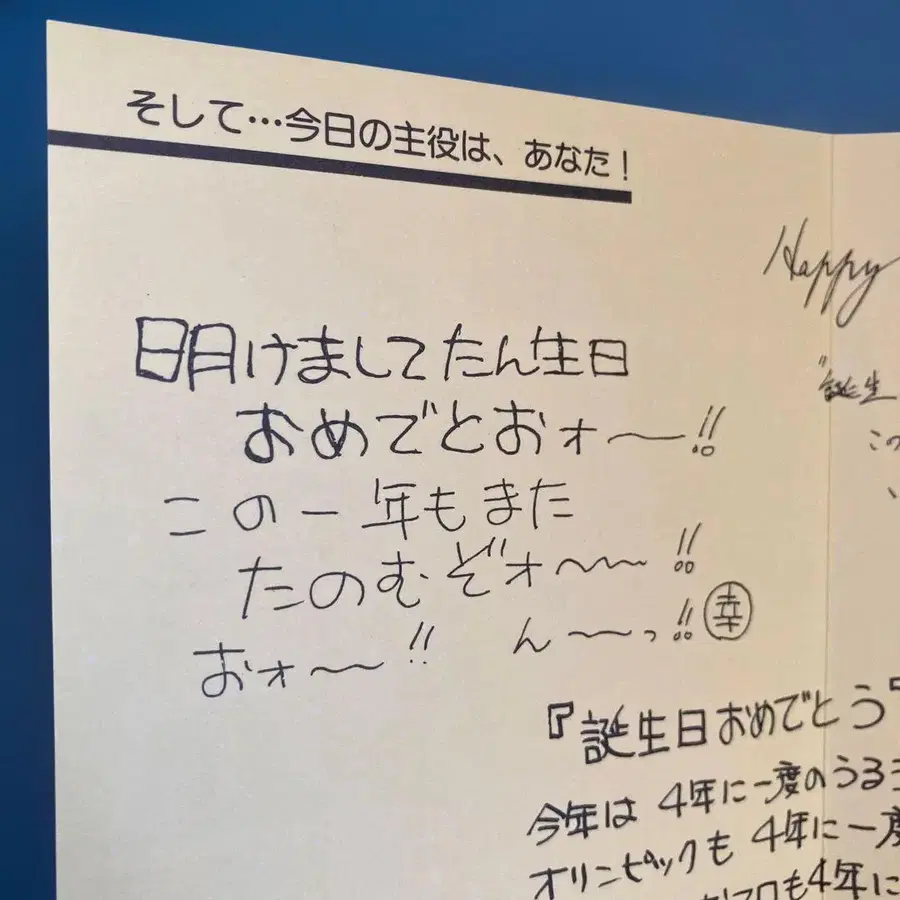 そして…今日の主役は、あなた！
Happy
明けましてたん生日
おめでとおォ〜!!
"誕生
この
この一年もまた
たのむぞォ〜〜!!
おォ〜〜!! ん〜〜っ!!㊞
『誕生日おめでとう』
今年は4年に一度のうるう
オリンピックも4年に一度
も4年に